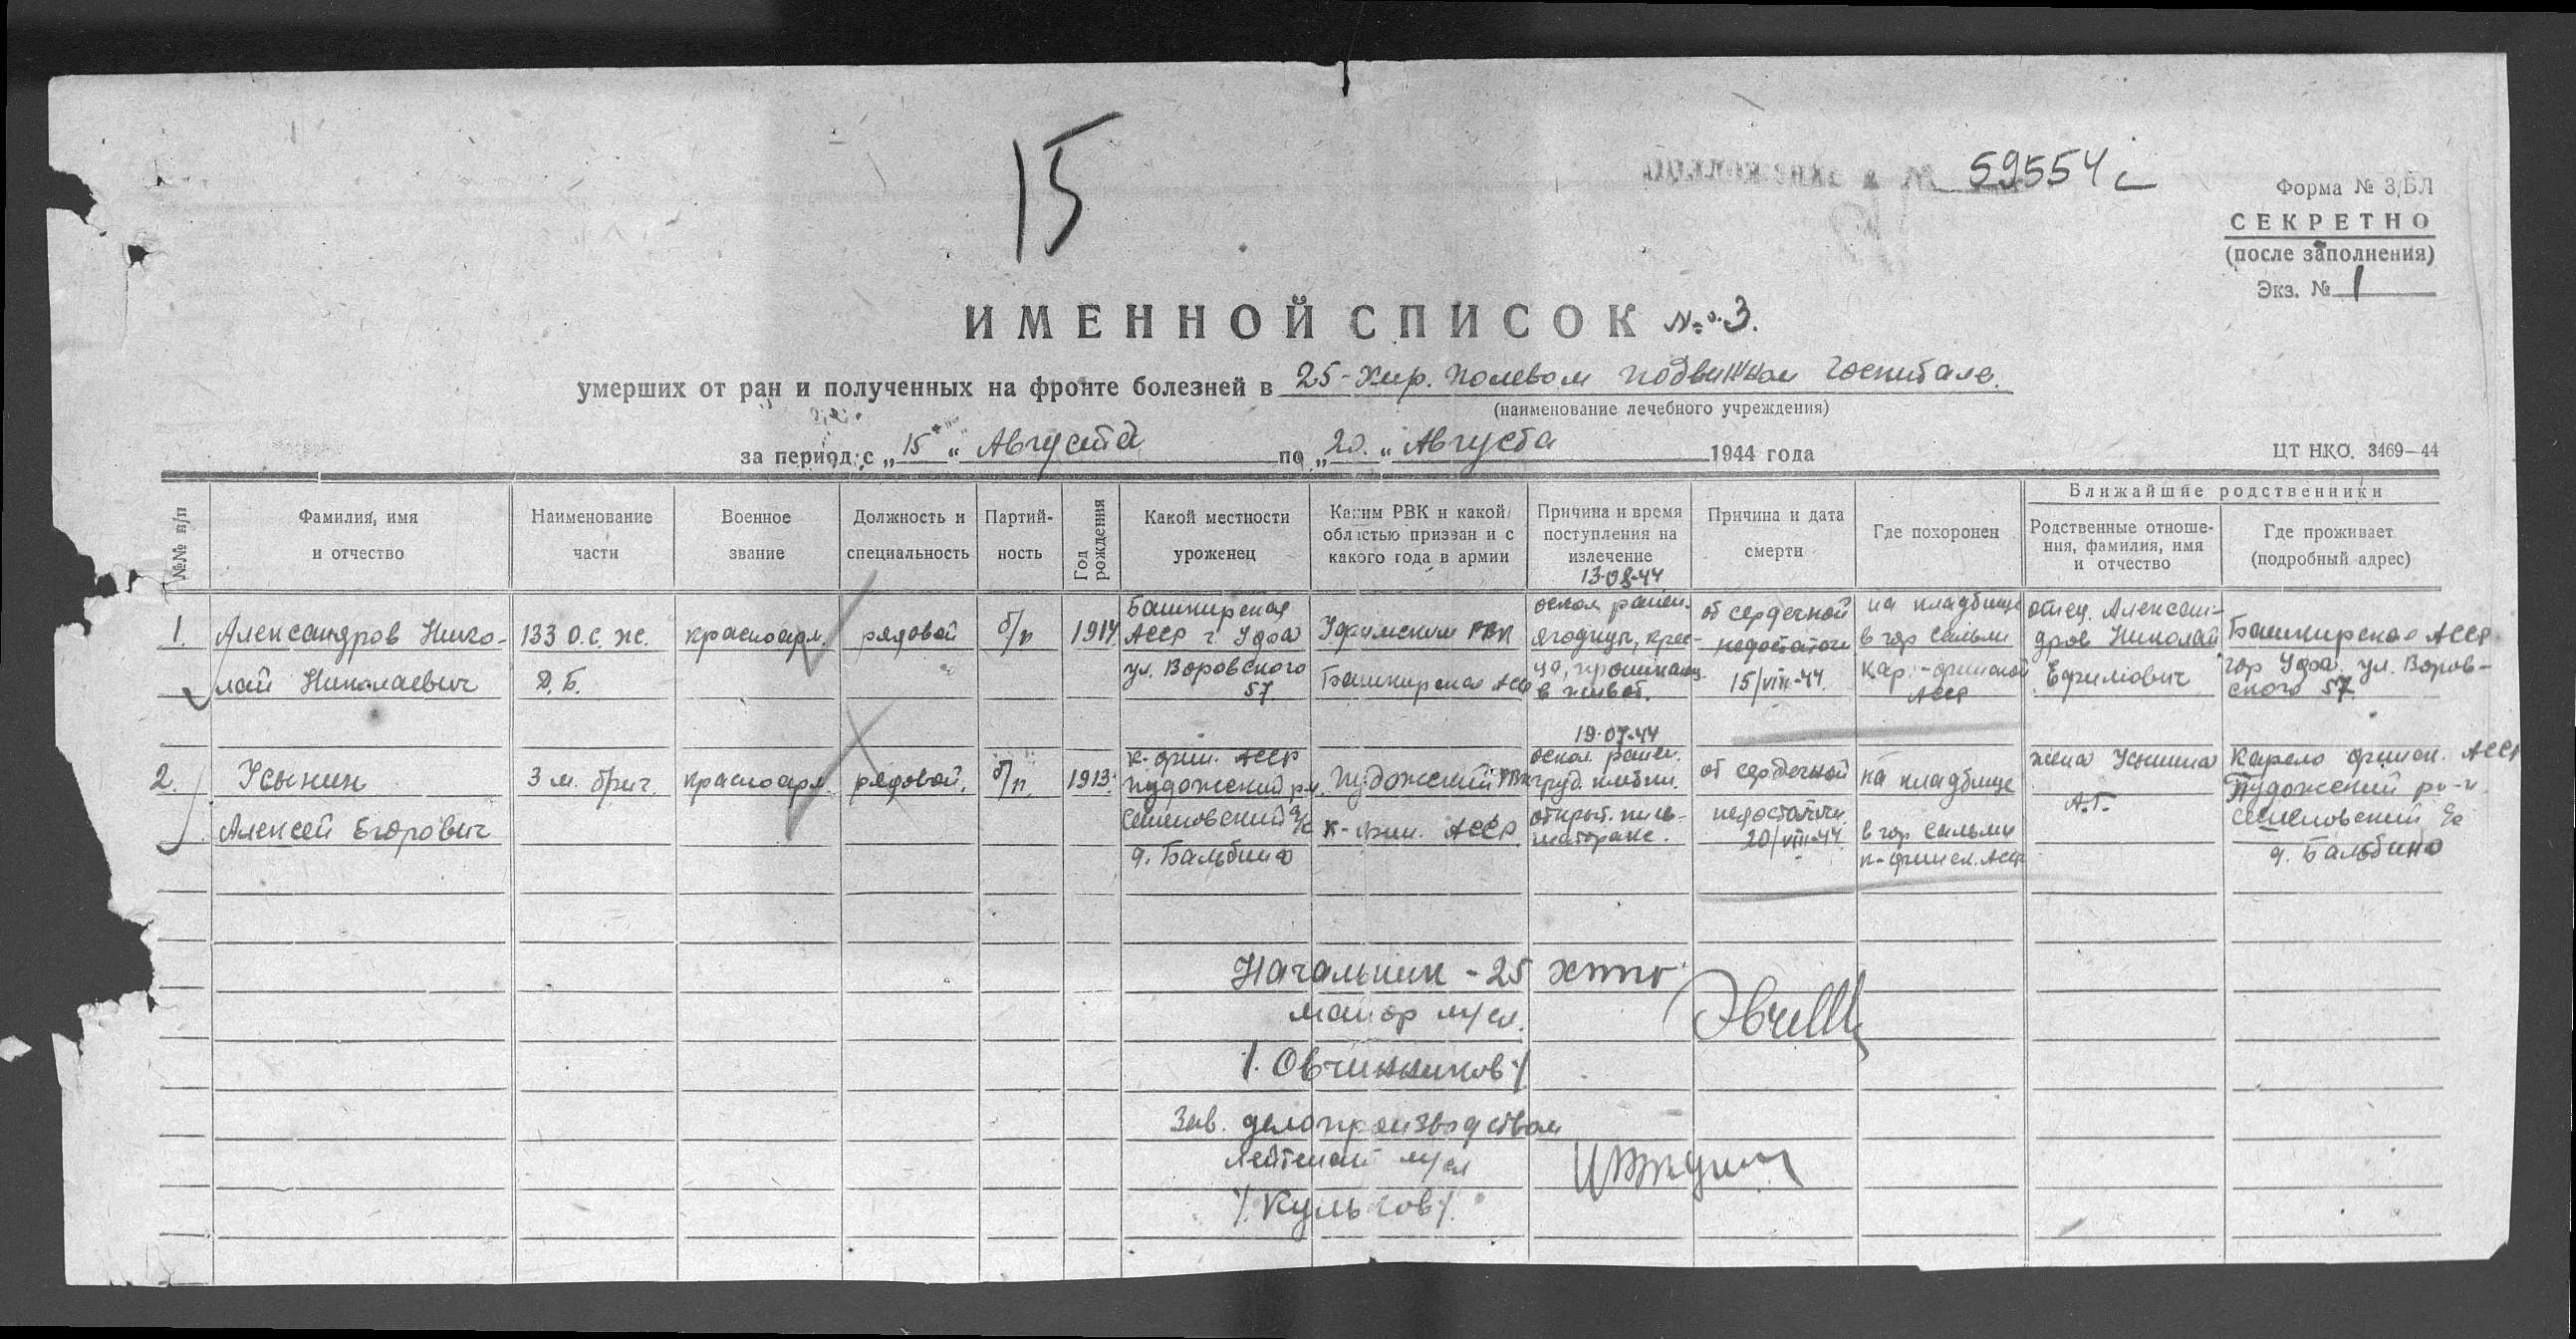 15
59554с
Форма № 3/БЛ
СЕКРЕТНО
(после заполнения)
Экз. № 1
ИМЕННОЙ СПИСОК №3.
умерших от ран и полученных на фронте болезней в 25-Хир. полевом подвижном госпитале.
(наименование лечебного учреждения)
за период с „15“ Августа по „20.“ Августа 1944 года
ЦТ НКО. 3469—44
№№ п/п
Фамилия, имя
и отчество
Наименование
части
Военное
звание
Должность и
специальность
Партий-
ность
Год
рождения
Какой местности
уроженец
Каким РВК и какой
областью призван и с
какого года в армии
Причина и время
поступления на
излечение
Причина и дата
смерти
Где похоронен
Ближайшие родственники
Родственные отноше-
ния, фамилия, имя
и отчество
Где проживает
(подробный адрес)
1.
Александров Нико-
лай Николаевич
133 О.С. ж.
Д.Б.
красноарм.
рядовой
б/п
1914
Башкирская
АССР г. Уфа
ул. Воровского
57
Уфимским РВК
Башкирская АССР
13-08-44
оскол. ранен.
ягодицы, крес-
ца, проникающ.
в живот.
от сердечной
недостаточн
15/VIII-44.
на кладбище
в гор Сальми
Кар.-финской
АССР
отец. Алексан-
дров Николай
Ефимович
Башкирская АССР.
гор Уфа. ул. Воров-
ского 57
2.
Усынин
Алексей Егорович
3 м. бриг.
красноарм.
рядовой,
б/п
1913.
К-фин. АССР
Пудожский р-н.
Семеновский с/с
д. Бальбино
Пудожский РВК
К-фин. АССР
19-07-44
оскол. ранен.
груд. клетки.
открыт. пнев-
моторакс.
от сердечной
недостаточн.
20/VIII-44.
на кладбище
в гор Сальми
к-финск. АССР
жена Усынина
А.Г.
Карело финск. АССР
Пудожский р-н
Семеновский с/с
д. Бальбино
Начальник - 25 ХППГ
майор м/сл.
/. Овчинников /
Зав. делопроизводством
лейтенант м/сл
/. Кульков /.